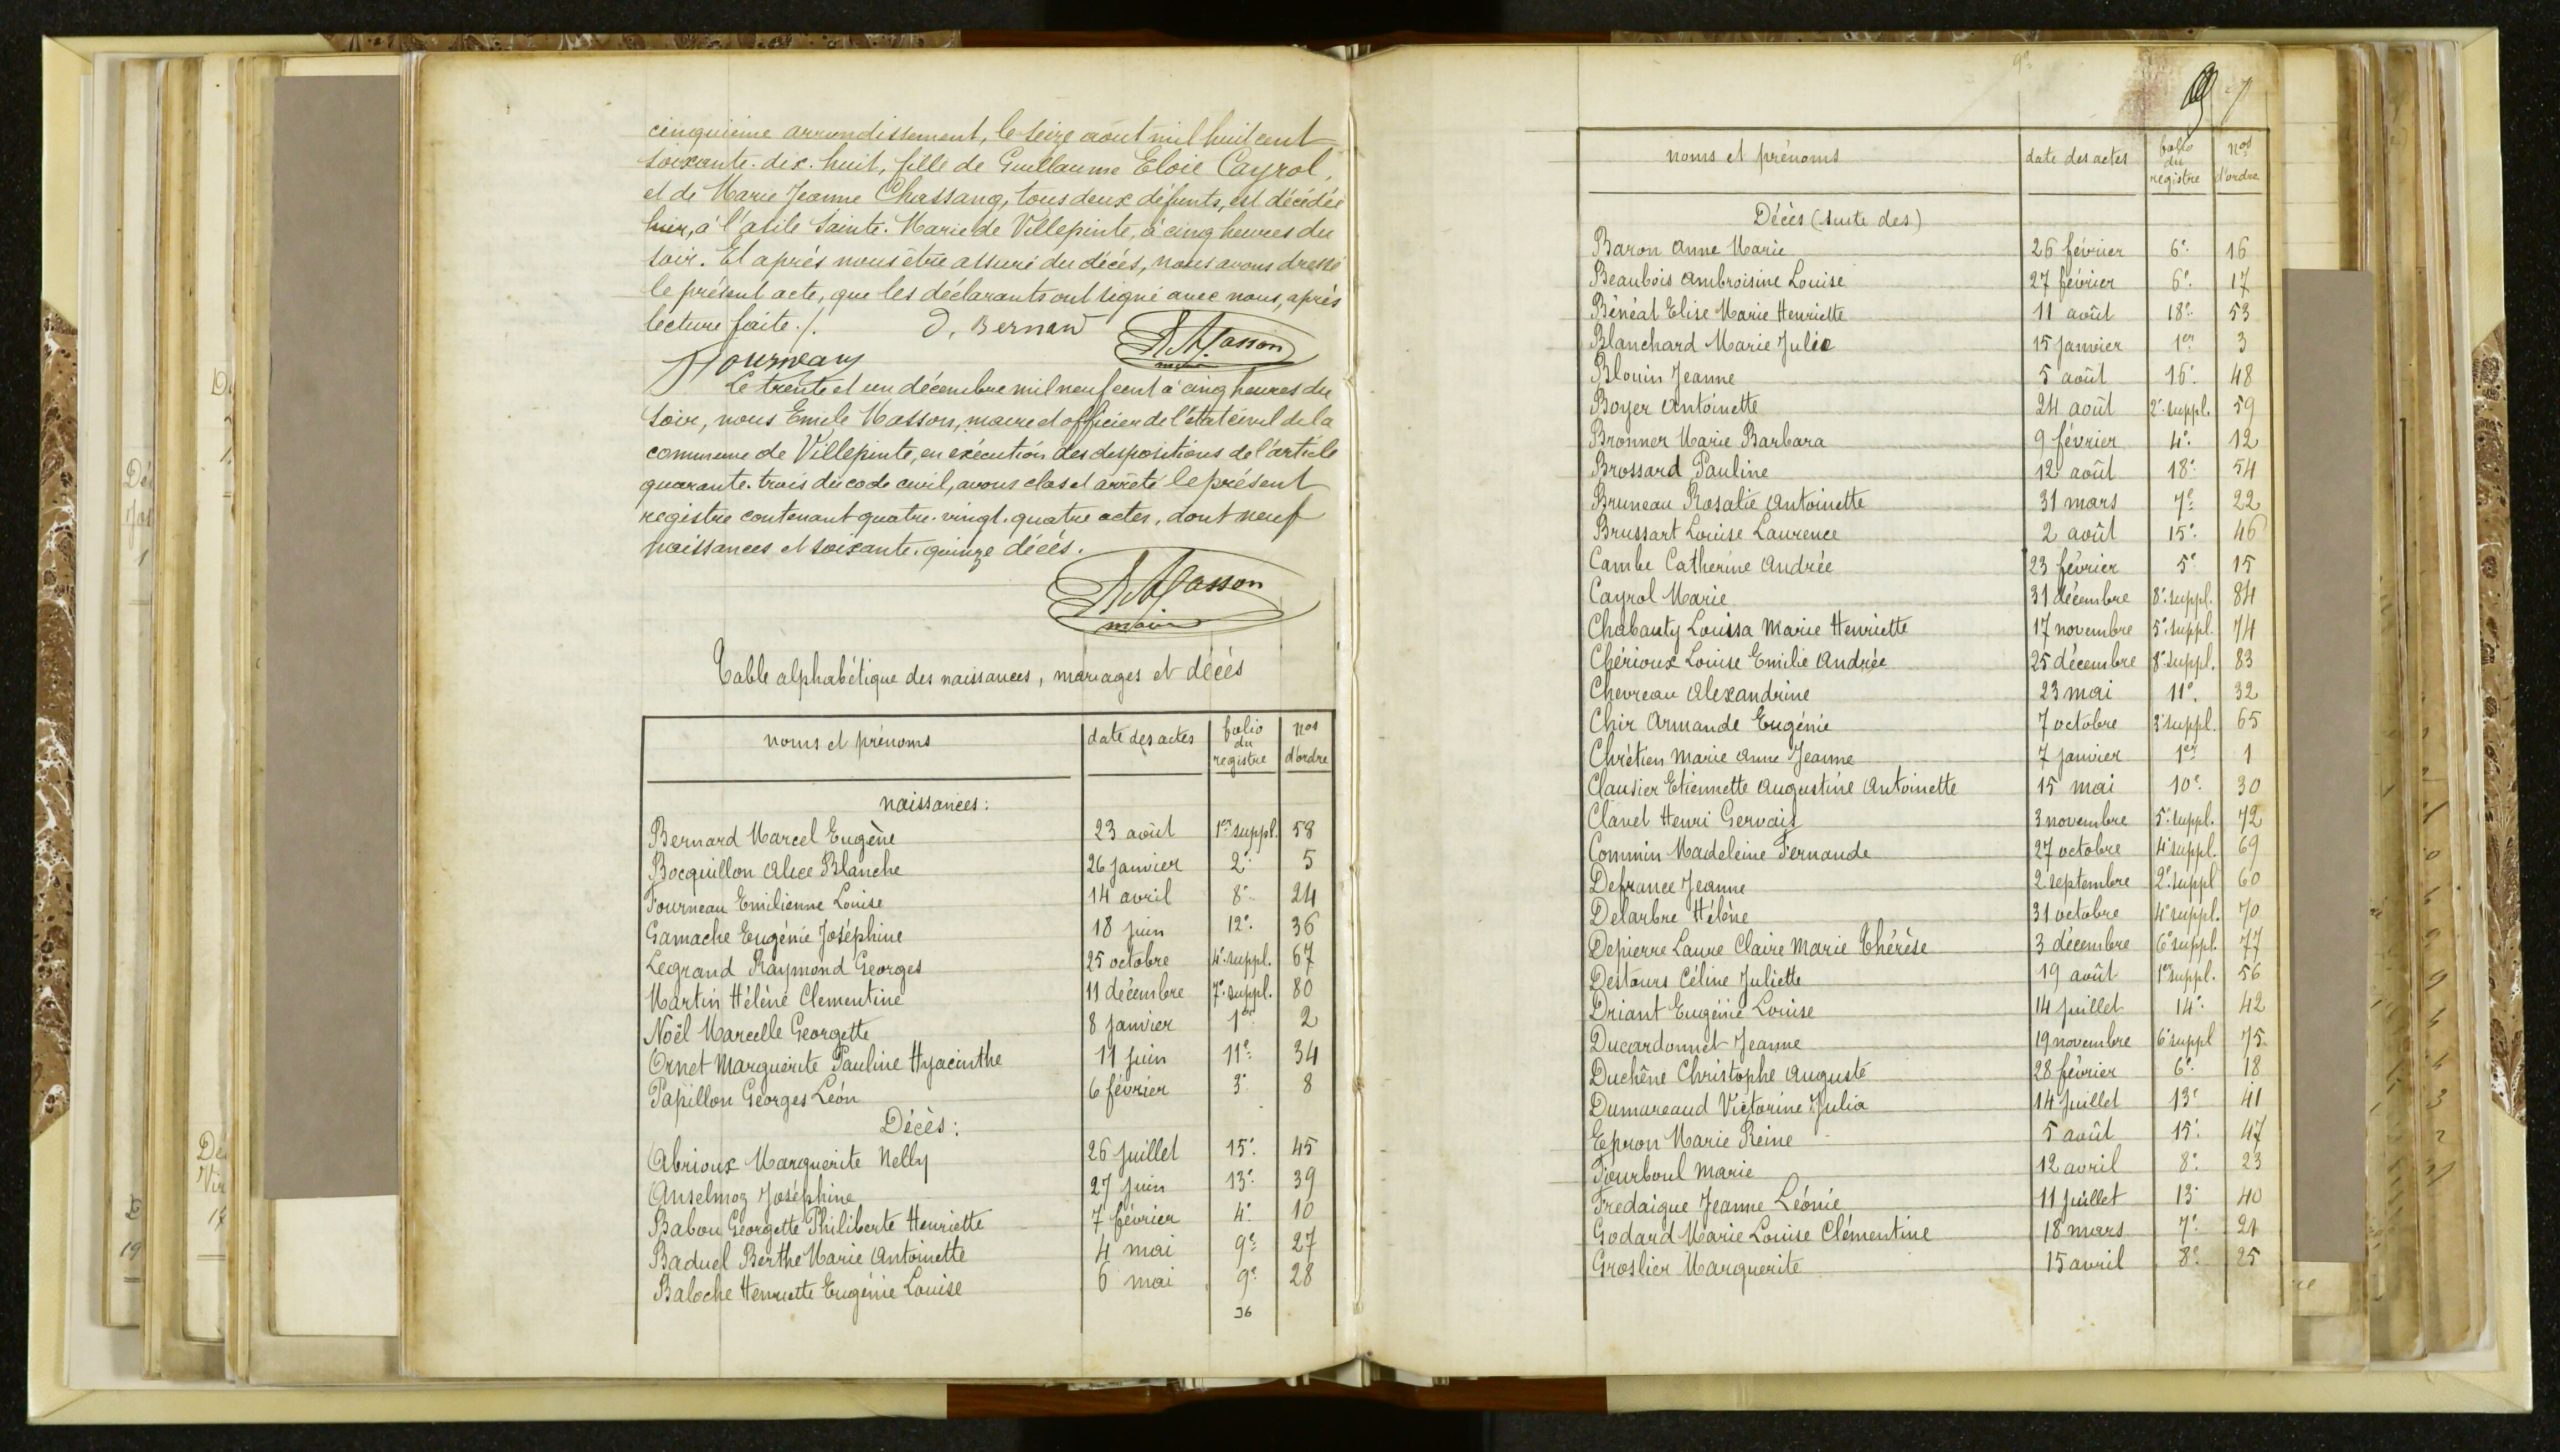 cinquième arrondissement, le seize août mil huit cent
soixante. dix. huit, fille de Guillaume Eloie Cayrol,
et de Marie Jeanne Chassang, tous deux défunts, est décédée
hier, à l'asile Sainte. Marie de Villepinte, à cinq heures du
soir. Et après nous être assuré du décès, nous avons dressé
le présent acte, que les déclarants ont signé avec nous, après
lecture faite./. D. Bernard Masson
Le trente et un décembre mil neuf cent à cinq heures du
soir, nous Emile Masson, maire et officier de l'état civil de la
commune de Villepinte, en exécution des dispositions de l'article
quarante. trois du code civil, avons clos et arrêté le présent
registre contenant quatre. vingt. quatre actes, dont neuf
naissances et soixante. quinze décès.
Masson
maire
Table alphabétique des naissances, mariages et décès
noms et prénoms date des actes folio du registre nos d'ordre
naissances:
Bernard Marcel Eugène 23 août 1er suppl. 58
Bocquillon Alice Blanche 26 janvier 2e 5
Fourneau Emilienne Louise 14 avril 8e 24
Gamache Eugénie Joséphine 18 juin 12e 36
Legrand Raymond Georges 25 octobre 4e suppl. 67
Martin Hélène Clementine 11 décembre 7e suppl. 80
Noël Marcelle Georgette 8 janvier 1er 2
Ornet Marguerite Pauline Hyacinthe 11 juin 11e 34
Papillon Georges Léon 6 février 3e 8
Décès:
Abrioux Marguerite Nelly 26 juillet 15e 45
Anselmoz Joséphine 27 juin 13e 39
Babou Georgette Philiberte Henriette 7 février 4e 10
Baduel Berthe Marie Antoinette 4 mai 9e 27
Baloche Henriette Eugénie Louise 6 mai 9e 28
36
noms et prénoms date des actes folio du registre nos d'ordre
Décès (suite des)
Baron Anne Marie 26 février 6e 16
Beaubois Ambroisine Louise 27 février 6e 17
Bénéat Elise Marie Henriette 11 août 18e 53
Blanchard Marie Julie 15 janvier 1er 3
Blouin Jeanne 5 août 16e 48
Boyer Antoinette 24 août 2e suppl. 59
Bronner Marie Barbara 9 février 4e 12
Brossard Pauline 12 août 18e 54
Bruneau Rosalie Antoinette 31 mars 7e 22
Brussart Louise Laurence 2 août 15e 46
Cambe Catherine Andrée 23 février 5e 15
Cayrol Marie 31 décembre 8e suppl. 84
Chabauty Louisa Marie Henriette 17 novembre 5e suppl. 74
Chérioux Louise Emilie Andrée 25 décembre 8e suppl. 83
Chevreau Alexandrine 23 mai 11e 32
Chir Armande Eugénie 7 octobre 3e suppl. 65
Chrétien Marie Anne Jeanne 7 janvier 1er 1
Clausier Etiennette Augustine Antoinette 15 mai 10e 30
Clavel Henri Gervais 3 novembre 5e suppl. 72
Commin Madeleine Fernande 27 octobre 4e suppl. 69
Defrance Jeanne 2 septembre 2e suppl 60
Delarbre Hélène 31 octobre 4e suppl. 70
Depierre Laure Claire Marie Thérèse 3 décembre 6e suppl. 77
Destours Céline Juliette 19 août 1er suppl. 56
Driant Eugénie Louise 14 juillet 14e 42
Ducardonnet Jeanne 19 novembre 6e suppl 75
Duchêne Christophe Auguste 28 février 6e 18
Dumareaud Victorine Julia 14 juillet 13e 41
Epron Marie Reine 5 août 15e 47
Fourboul Marie 12 avril 8e 23
Fredaigue Jeanne Léonie 11 juillet 13e 40
Godard Marie Louise Clémentine 18 mars 7e 21
Groslier Marguerite 15 avril 8e 25